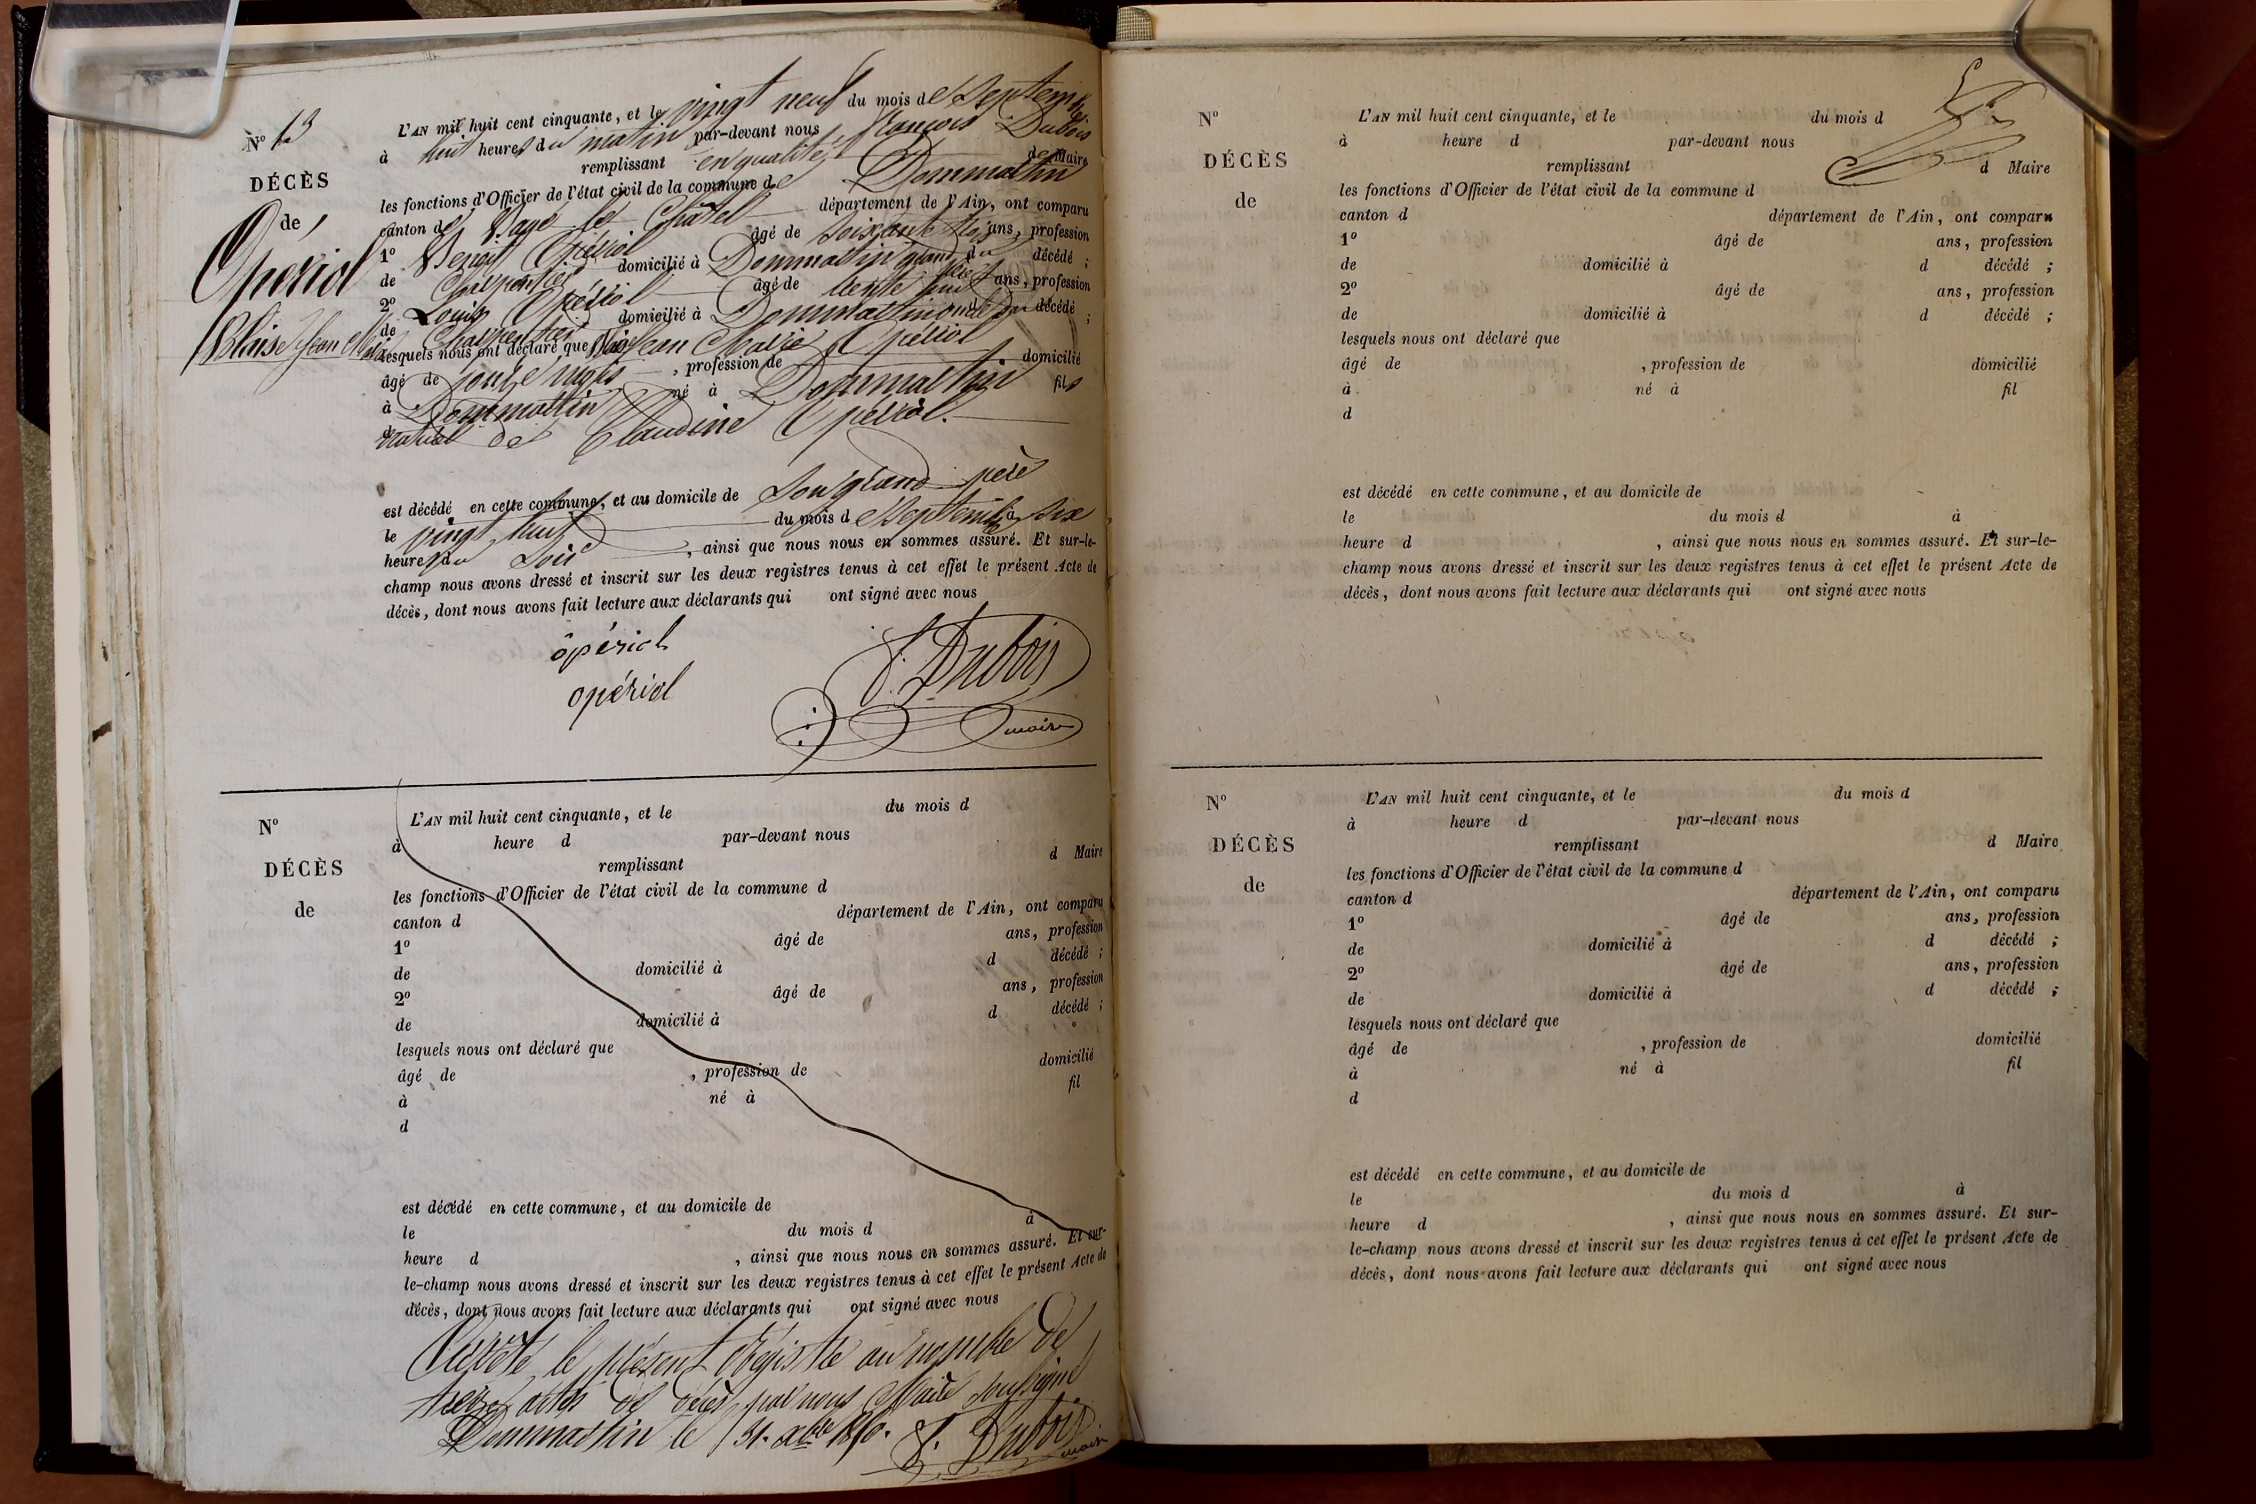 N° 13
DÉCÈS
de
Opériol
Blaise Jean Marie
L'AN mil huit cent cinquante, et le vingt neuf du mois de Septembre
à huit heures du matin par-devant nous François Dubois
remplissant en qualité de Maire
les fonctions d'Officier de l'état civil de la commune de Dommartin
canton de Bagé le Châtel département de l'Ain, ont comparu
1° Benoit Opériol âgé de soixante trois ans, profession
de Charpentier domicilié à Dommartin grand père du décédé ;
2° Louis Opériol âgé de trente huit ans, profession
de Charpentier domicilié à Dommartin oncle du décédé ;
lesquels nous ont déclaré que Blaise Jean Marie Opériol
âgé de mois , profession de domicilié
à Dommartin né à Dommartin fils
naturel de Claudine Opériol.
est décédé en cette commune, et au domicile de son grand père
le vingt huit du mois de Septembre à six
heures du soir , ainsi que nous nous en sommes assuré. Et sur-le-
champ nous avons dressé et inscrit sur les deux registres tenus à cet effet le présent Acte de
décès, dont nous avons fait lecture aux déclarants qui ont signé avec nous
opériol
opériol
f. Dubois
maire
N°
DÉCÈS
de
L'AN mil huit cent cinquante, et le du mois d
à heure d par-devant nous
remplissant d Maire
les fonctions d'Officier de l'état civil de la commune d
canton d département de l'Ain, ont comparu
1° âgé de ans, profession
de domicilié à d décédé ;
2° âgé de ans, profession
de domicilié à d décédé ;
lesquels nous ont déclaré que
âgé de , profession de domicilié
à né à fil
d
est décédé en cette commune, et au domicile de
le du mois d à
heure d , ainsi que nous nous en sommes assuré. Et sur-
le-champ nous avons dressé et inscrit sur les deux registres tenus à cet effet le présent Acte de
décès, dont nous avons fait lecture aux déclarants qui ont signé avec nous
Arrêté le présent Régistre au nombre de
treize actes de décès par nous Maire soussigné
Dommartin le 31. Xbre 1850. f. Dubois
maire
N°
DÉCÈS
de
L'AN mil huit cent cinquante, et le du mois d
à heure d par-devant nous
remplissant d Maire
les fonctions d'Officier de l'état civil de la commune d
canton d département de l'Ain, ont comparu
1° âgé de ans, profession
de domicilié à d décédé ;
2° âgé de ans, profession
de domicilié à d décédé ;
lesquels nous ont déclaré que
âgé de , profession de domicilié
à né à fil
d
est décédé en cette commune, et au domicile de
le du mois d à
heure d , ainsi que nous nous en sommes assuré. Et sur-le-
champ nous avons dressé et inscrit sur les deux registres tenus à cet effet le présent Acte de
décès, dont nous avons fait lecture aux déclarants qui ont signé avec nous
N°
DÉCÈS
de
L'AN mil huit cent cinquante, et le du mois d
à heure d par-devant nous
remplissant d Maire
les fonctions d'Officier de l'état civil de la commune d
canton d département de l'Ain, ont comparu
1° âgé de ans, profession
de domicilié à d décédé ;
2° âgé de ans, profession
de domicilié à d décédé ;
lesquels nous ont déclaré que
âgé de , profession de domicilié
à né à fil
d
est décédé en cette commune, et au domicile de
le du mois d à
heure d , ainsi que nous nous en sommes assuré. Et sur-
le-champ nous avons dressé et inscrit sur les deux registres tenus à cet effet le présent Acte de
décès, dont nous avons fait lecture aux déclarants qui ont signé avec nous